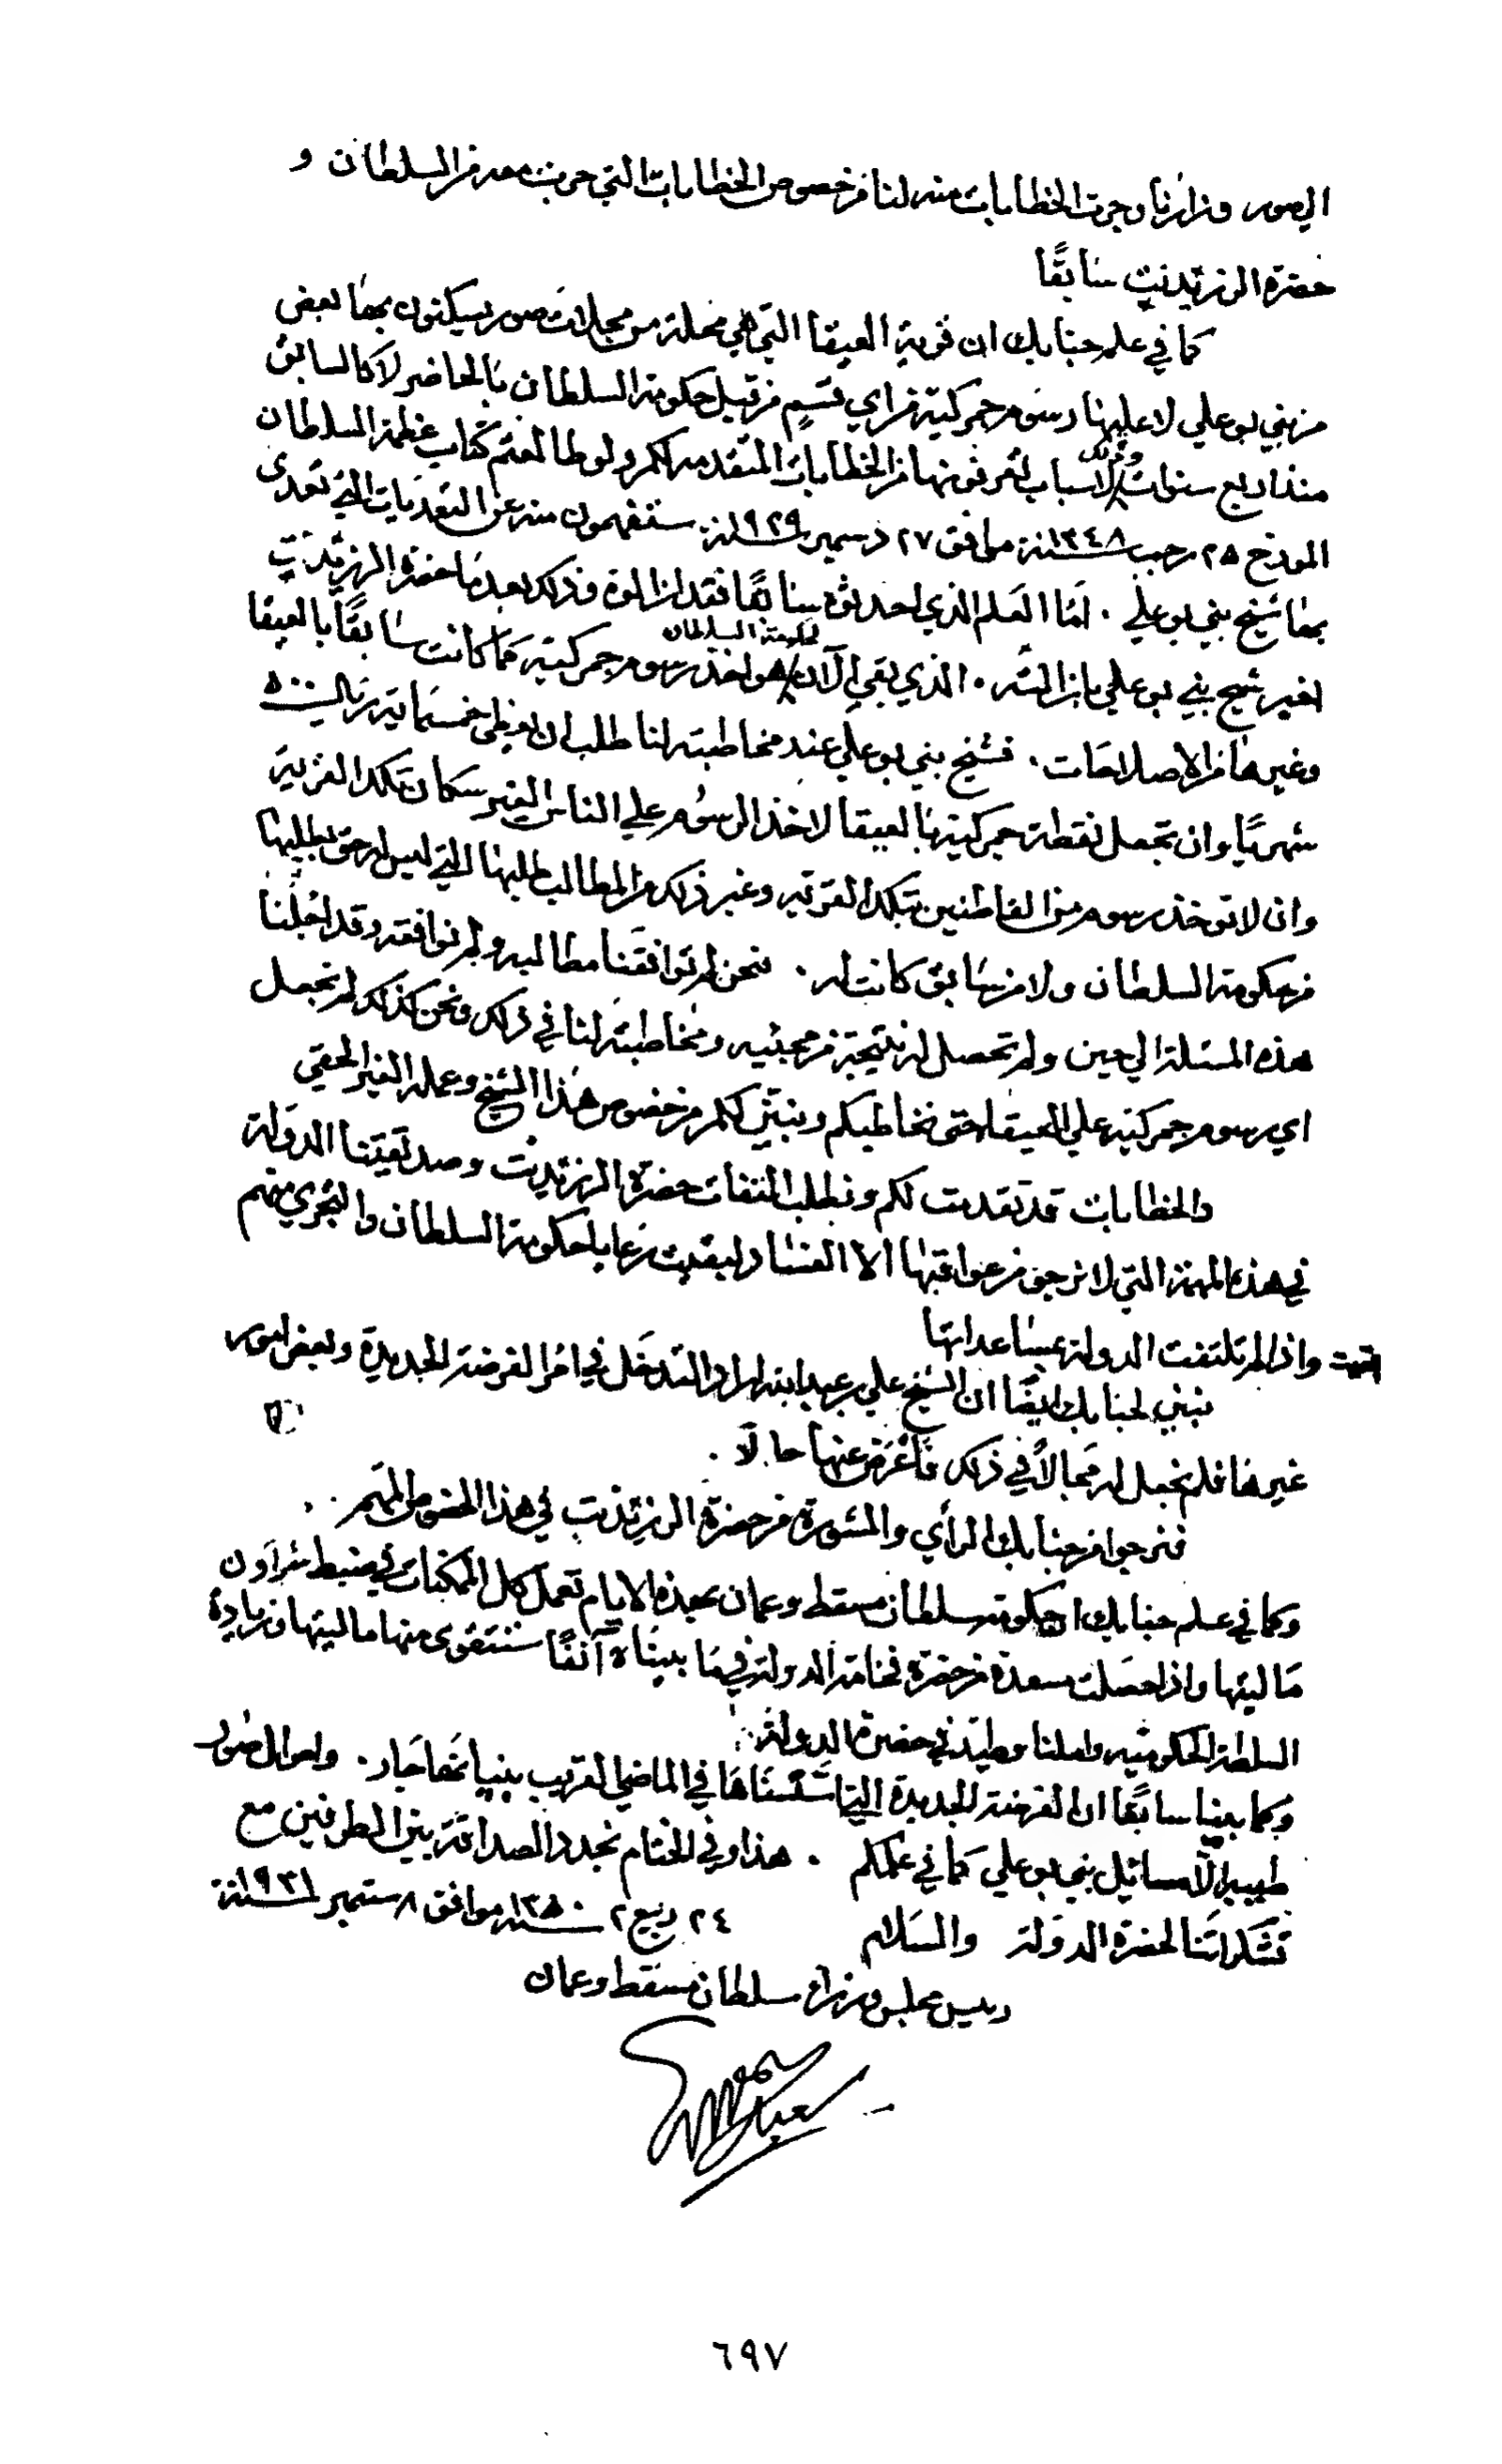 الى صور وزارنا وجرت الخطابات منه لنا من خصوص الخطابات التي جرت معه من السلطان و
حضرة الرزيدنت سابقًا
كما في علم جنابك ان قرية العيقا التي هي محلة من محلات صور يسكنون بها بعض
من بني بوعلي لا عليها رسوم جمركية من اي قسم من قبل حكومة السلطان بالحاضر لا كالسابق
منذ اربع سنوات وذلك لاسباب تعرفونها من الخطابات المتقدمه لكم ولو طالعتم كتاب عظمة السلطان
المورخ ٢٥ رجب سنة ١٣٤٨ موافق ٢٧ دسمبر سنة ١٩٢٩ ستفهمون منه عن التعديات التي تعدى
بها شيخ بني بوعلي . امّا العلم الذي احدثوه سابقًا فقد ازالوه وذلك بعد ما حضرة الرزيدنت
اخبر شيخ بني بوعلي بازالته . الذي بقي الآن لحكومة السلطان هو اخذ رسوم جمركية كما كانت سابقًا بالعيقا
وغيرها من الاصلاحات . فشيخ بني بوعلي عند مخاطبته لنا طلب ان يعطى خمسماية ريال ٥٠٠
شهريًا وان تجعل نقطة جمركية بالعيقا لاخذ الرسوم على الناس الغير سكان تلك القرية
وان لا توخذ رسوم من القاطنين بتلك القرية وغير ذلك من المطالب طلبها التي ليس له حق بطلبها
من حكومة السلطان ولا من سابق كانت له . نحن لم توافقنا مطالبه ولم نوافقه وقد اجلنا
هذه المسئلة الى حين ولم تحصل له نتيجة من مجئيه ومخاطبته لنا في ذلك ونحن كذلك لم نجعل
اي رسوم جمركية على العيقا حتى نخاطبكم ونبين لكم من خصوص هذا الشيخ وعمله الغير الحقي
والخطابات قد تقدمت لكم ونطلب التفات حضرة الرزيدنت وصديقتنا الدولة
في هذه المهمة التي لا نرجو من عواقبها الا الفساد لبقيت رعايا حكومة السلطان والتجري منهم
وتمت واذا لم تلتفت الدولة بمساعداتها
نبين لجنابك ايضًا ان الشيخ علي بن عبدالله اراد التدخل في امر الفرضة الجديدة وبعض امور
غيرها فلم نجعل له مجالاً في ذلك فاعرض عنها حالاً .
فنرجوا من جنابك الرأي والمشورة من حضرة الرزيدنت في هذا الخصوص المهم .
وكما في علم جنابك ان حكومة سلطان مسقط وعمان بهذه الايام تعمل كل الممكنات في ضبط شراون
ماليتها واذا حصلت مساعدة من حضرة فخامة الدولة فيما بيناه آنفًا ستتقوى منها ماليتها وزيادة
السلطة الحكومتيه واملنا وطيد في حضرة الدولة .
وكما بينا سابقًا ان الفرضة الجديدة التي اسسناها في الماضي القريب بنيانها جار . واحوال صور
طيبه الا مسائل بني بوعلي كما في علمكم . هذا وفي الختام نجدد الصداقة بين الطرفين مع
تشكراتنا لحضرة الدولة والسلام ٢٤ ربيع ٢ سنة ١٣٥٠ موافق ٨ ستمبر سنة ١٩٣١
رئيس مجلس وزراء سلطان مسقط وعمان
٦٩٧